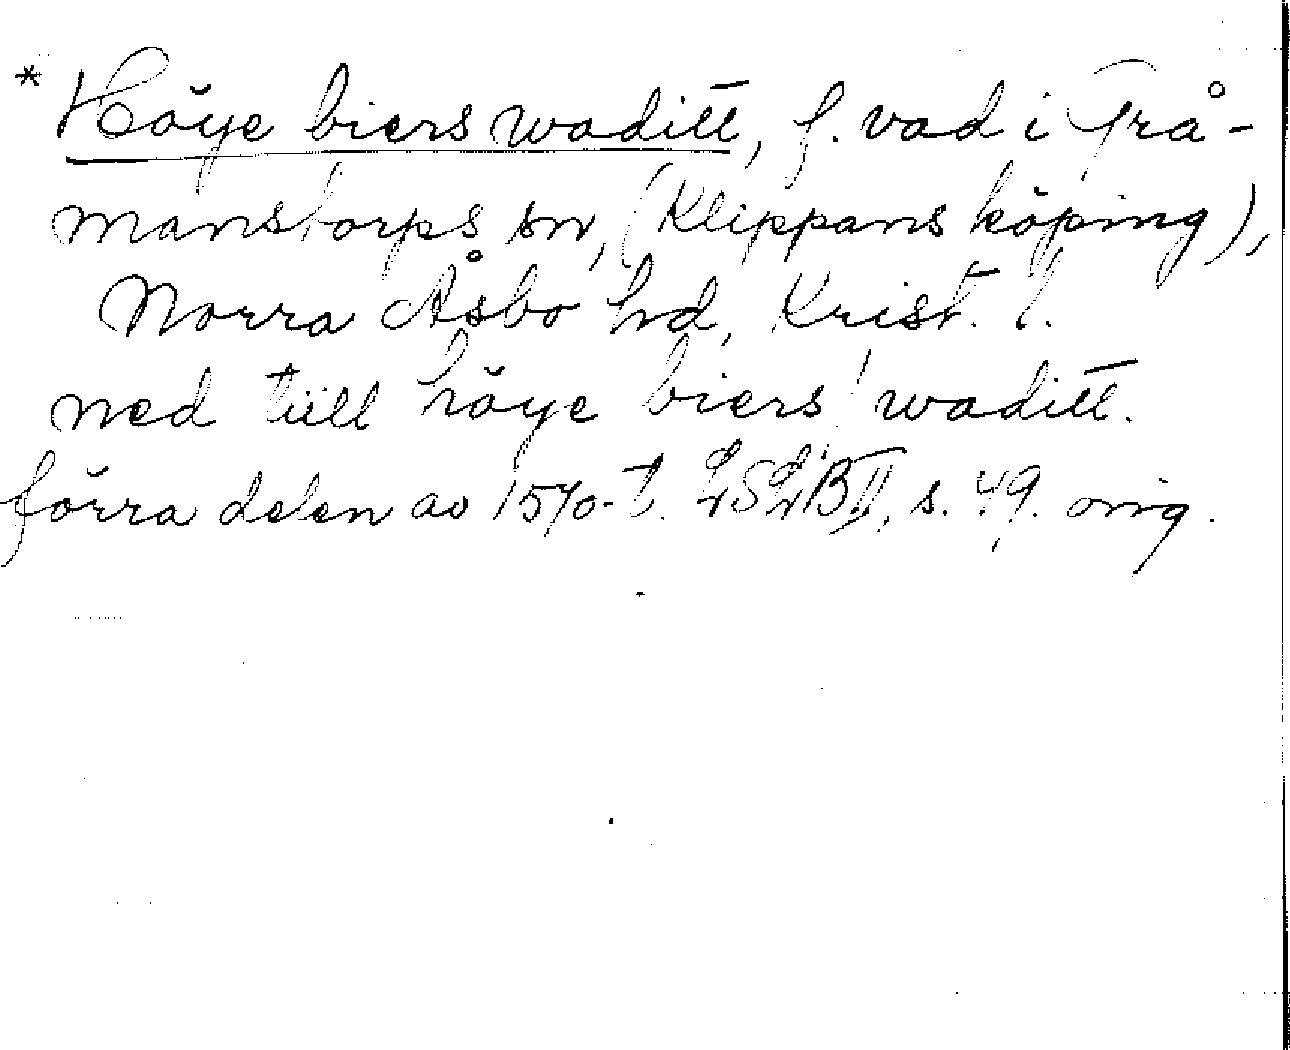 * Höye biers waditt, f. vad i Grå-
manstorps sn, (Klippans köping),
Norra Åsbo hd, Krist. l.
ned tiill höye biers waditt.
förra delen av 1570-t. LSLB II, s. 49. orig.